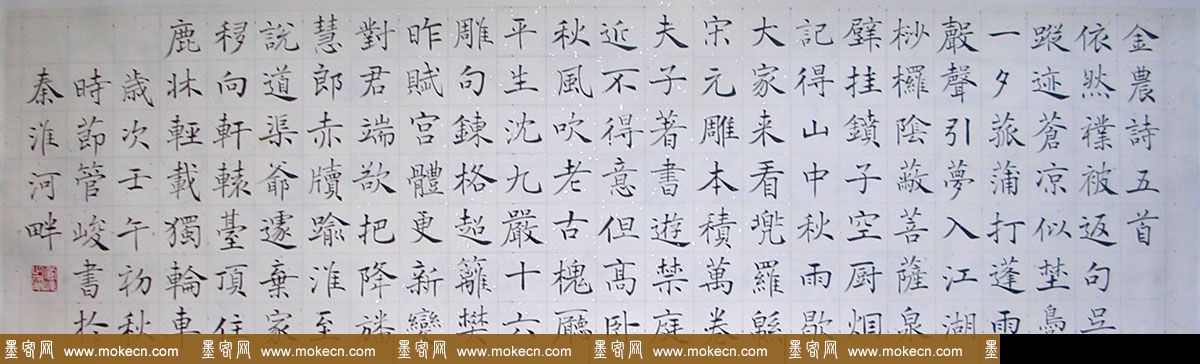 金農詩五首
依然襆被返句吴
蹤迹蒼凉似埜鳥
一夕菰蒲打蓬雨
聲聲引夢入江湖
桫欏陰蔽菩薩泉
壁挂鐼子空厨烟
記得山中秋雨歇
大家来看兜羅緜
宋元雕本積萬卷
夫子著書遊禁庭
近不得意但高卧
秋風吹老古槐廳
平生沈九嚴十六
雕句鍊格超籬樊
昨賦宮體更新變
對君端欲把降旛
慧郎赤牘踰淮至
說道渠爺遽棄家
移向軒轅臺頂住
鹿牀輕載獨輪車
歲次壬午初秋
時節管峻書於
秦淮河畔
墨客网 www.mokecn.com 墨客网 www.mokecn.com 墨客网 www.mokecn.com 墨客网 www.mokecn.com 墨客网 www.mokecn.com 墨客网 www.mokecn.com